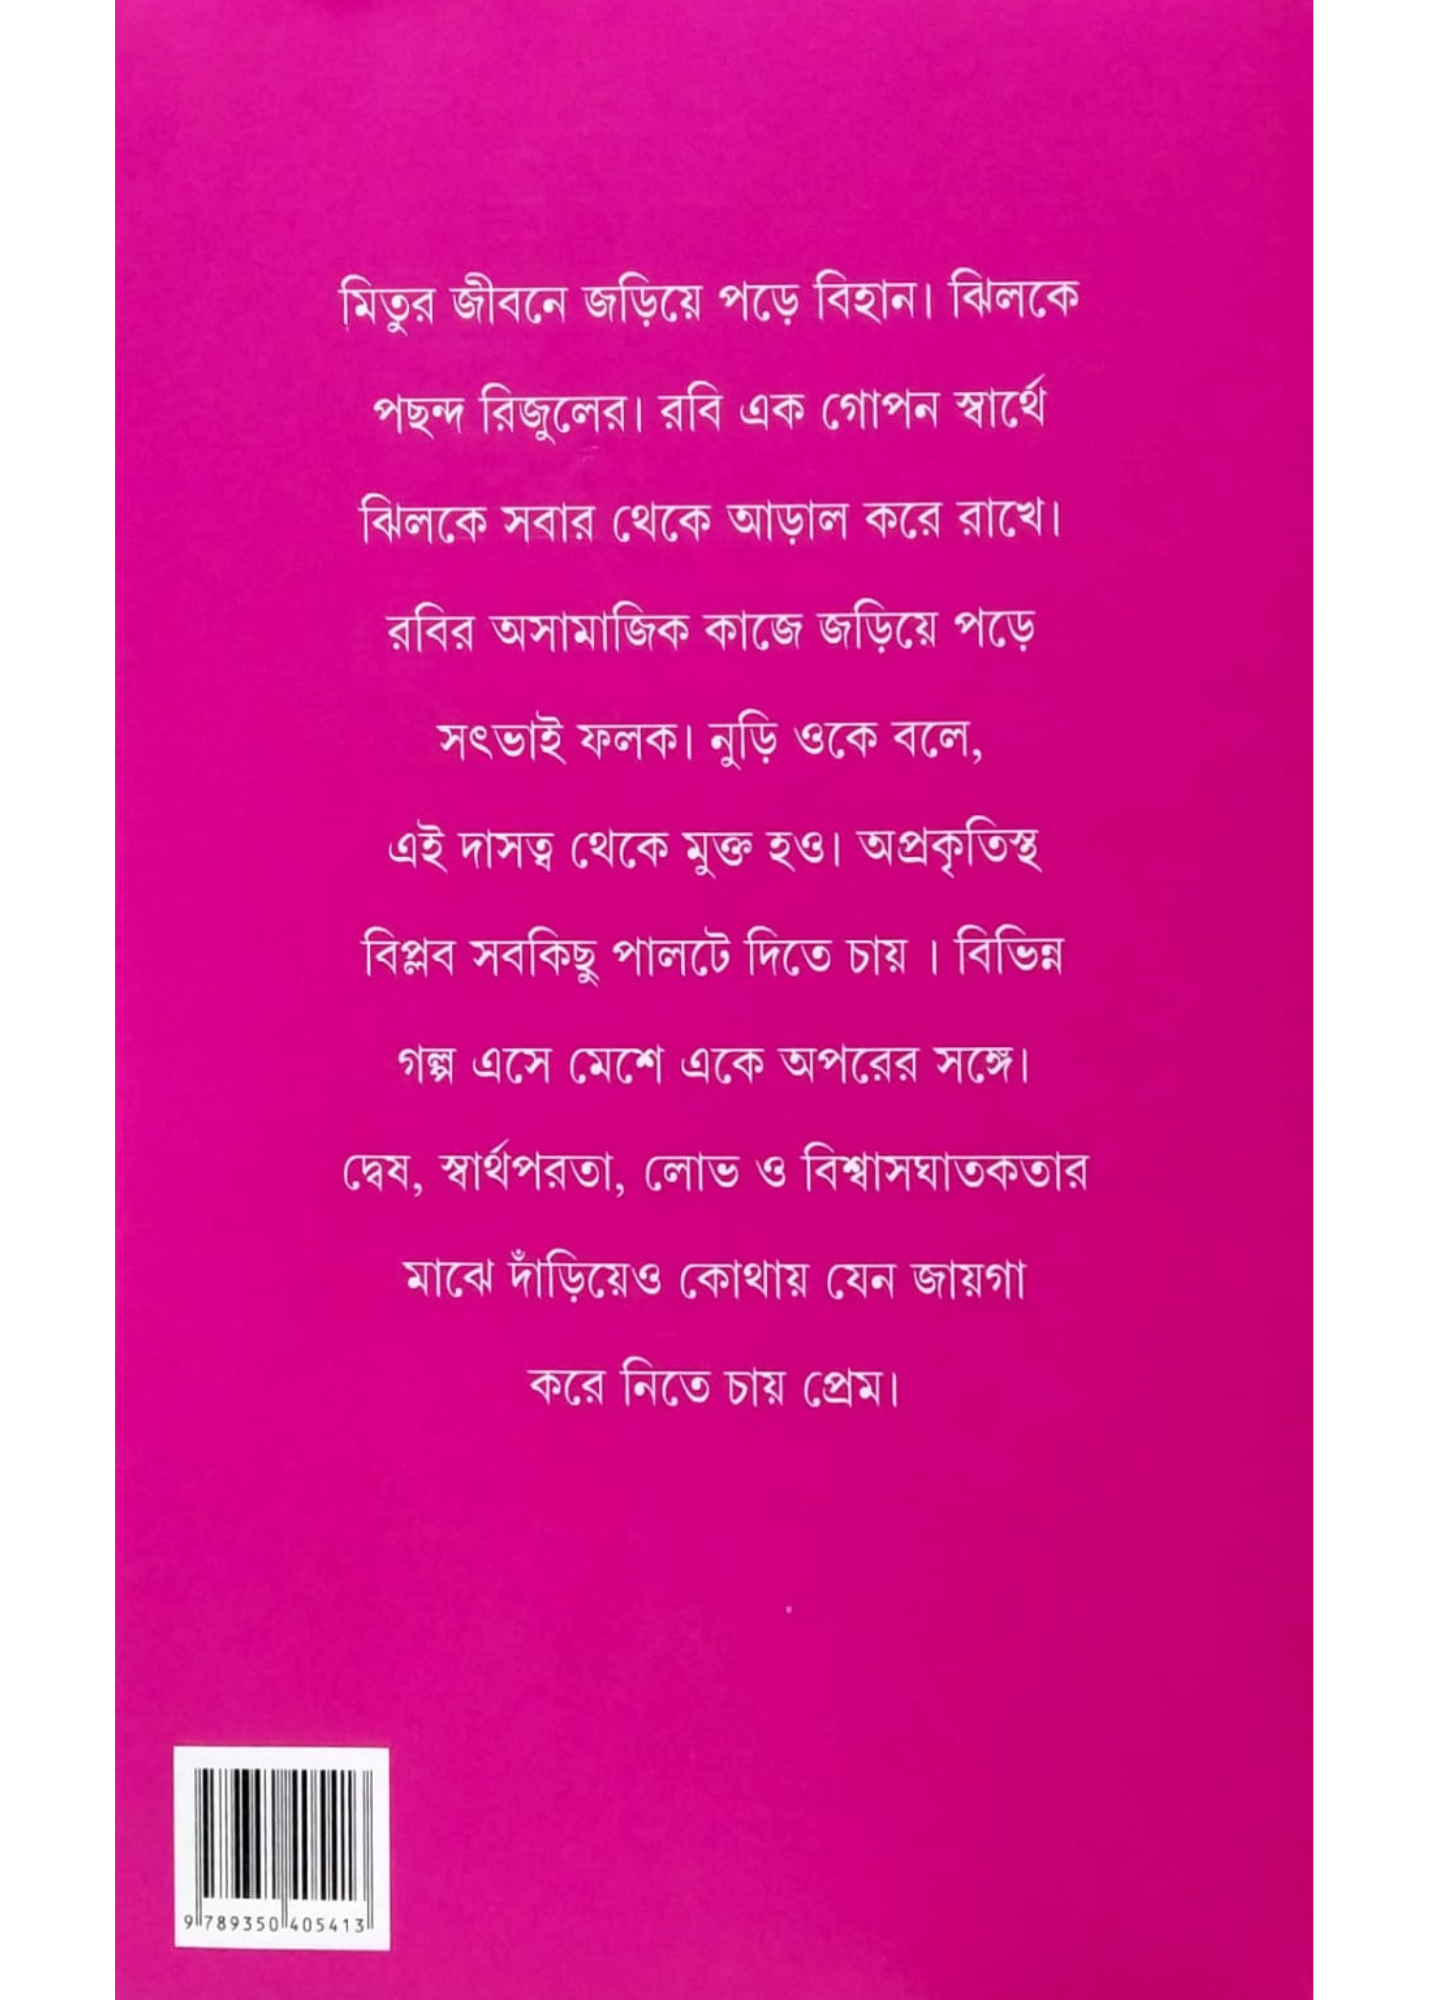 মিতুর জীবনে জড়িয়ে পড়ে বিহান। ঝিলকে
পছন্দ রিজুলের। রবি এক গোপন স্বার্থে
ঝিলকে সবার থেকে আড়াল করে রাখে।
রবির অসামাজিক কাজে জড়িয়ে পড়ে
সৎভাই ফলক। নুড়ি ওকে বলে,
এই দাসত্ব থেকে মুক্ত হও। অপ্রকৃতিস্থ
বিপ্লব সবকিছু পালটে দিতে চায় । বিভিন্ন
গল্প এসে মেশে একে অপরের সঙ্গে।
দ্বেষ, স্বার্থপরতা, লোভ ও বিশ্বাসঘাতকতার
মাঝে দাঁড়িয়েও কোথায় যেন জায়গা
করে নিতে চায় প্রেম।
9 789350 405413